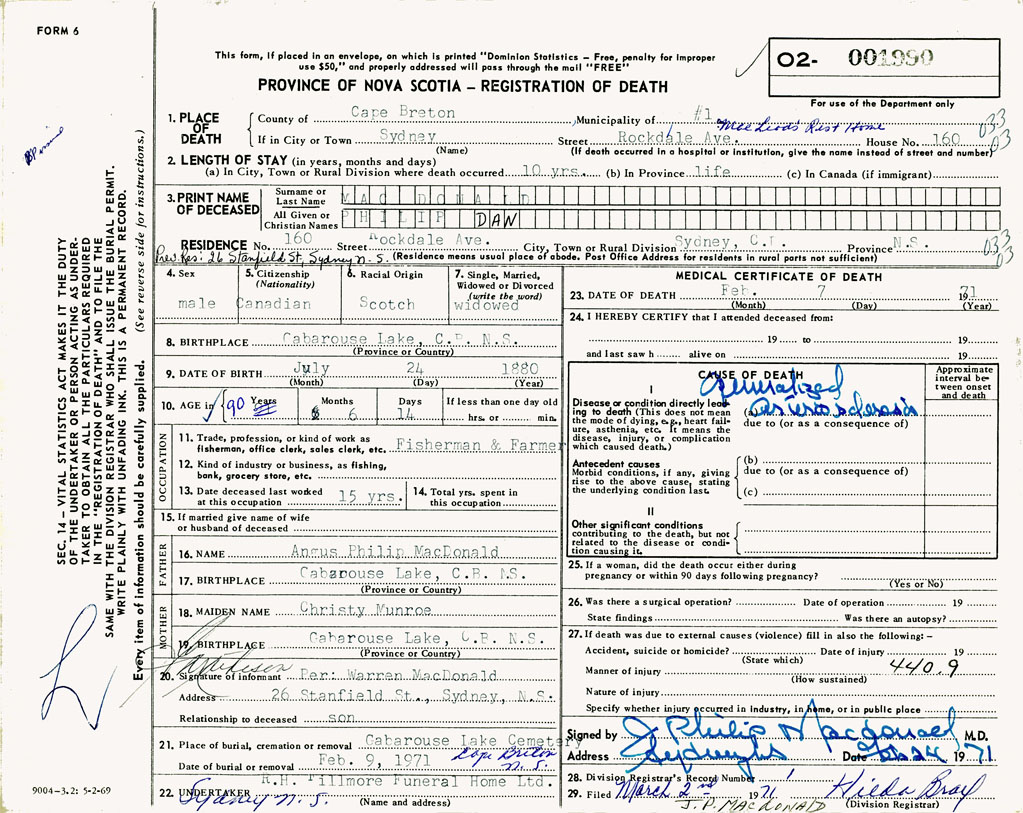 FORM 6
This form, if placed in an envelope, on which is printed "Dominion Statistics – Free, penalty for improper
use $50," and properly addressed will pass through the mail "FREE"
PROVINCE OF NOVA SCOTIA – REGISTRATION OF DEATH
O2- 001990
For use of the Department only
SEC. 14 – VITAL STATISTICS ACT MAKES IT THE DUTY
OF THE UNDERTAKER OR PERSON ACTING AS UNDER-
TAKER TO OBTAIN ALL THE PARTICULARS REQUIRED
IN THE "REGISTRATION OF DEATH" AND TO FILE THE
SAME WITH THE DIVISION REGISTRAR WHO SHALL ISSUE THE BURIAL PERMIT.
WRITE PLAINLY WITH UNFADING INK. THIS IS A PERMANENT RECORD.
Every item of information should be carefully supplied. (See reverse side for instructions.)
1. PLACE OF DEATH
County of Cape Breton Municipality of #1
MacLeod's Rest Home
If in City or Town Sydney Street Rockdale Ave. House No. 160 033
03
(Name) (If death occurred in a hospital or institution, give the name instead of street and number)
2. LENGTH OF STAY (in years, months and days)
(a) In City, Town or Rural Division where death occurred 10 yrs. (b) In Province life (c) In Canada (if immigrant)
3. PRINT NAME OF DECEASED
Surname or Last Name MAC DONALD
All Given or Christian Names PHILIP DAN
RESIDENCE No. 160 Street Rockdale Ave. City, Town or Rural Division Sydney, C.B. Province N.S. 033
03
Prev. Res: 26 Stanfield St, Sydney N.S. (Residence means usual place of abode. Post Office Address for residents in rural parts not sufficient)
4. Sex
male
5. Citizenship
(Nationality)
Canadian
6. Racial Origin
Scotch
7. Single, Married,
Widowed or Divorced
(write the word)
widowed
8. BIRTHPLACE Cabarouse Lake, C.B. N.S.
(Province or Country)
9. DATE OF BIRTH July 24 1880
(Month) (Day) (Year)
10. AGE in 90 Years Months 6 Days 14 If less than one day old
hrs. or min.
OCCUPATION
11. Trade, profession, or kind of work as
fisherman, office clerk, sales clerk, etc. Fisherman & Farmer
12. Kind of industry or business, as fishing,
bank, grocery store, etc.
13. Date deceased last worked
at this occupation 15 yrs.
14. Total yrs. spent in
this occupation
15. If married give name of wife
or husband of deceased
FATHER
16. NAME Angus Philip MacDonald
17. BIRTHPLACE Cabarouse Lake, C.B. NS.
(Province or Country)
MOTHER
18. MAIDEN NAME Christy Munroe
19. BIRTHPLACE Cabarouse Lake, C.B. N.S.
(Province or Country)
20. Signature of informant Per: Warren MacDonald
Address 26 Stanfield St., Sydney, N.S.
Relationship to deceased son
21. Place of burial, cremation or removal Cabarouse Lake Cemetery
Date of burial or removal Feb. 9, 1971 Cape Breton
N.S.
R.H. Fillmore Funeral Home Ltd.
22. UNDERTAKER Sydney N.S.
(Name and address)
9004-3.2: 5-2-69
MEDICAL CERTIFICATE OF DEATH
23. DATE OF DEATH Feb. 7 1971
(Month) (Day) (Year)
24. I HEREBY CERTIFY that I attended deceased from:
19 to 19
and last saw h alive on 19
CAUSE OF DEATH
Approximate
interval be-
tween onset
and death
I
Generalized
Disease or condition directly lead-
ing to death (This does not mean
the mode of dying, e.g., heart fail-
ure, asthenia, etc. It means the
disease, injury, or complication
which caused death.)
(a) arteriosclerosis
due to (or as a consequence of)
Antecedent causes
Morbid conditions, if any, giving
rise to the above cause, stating
the underlying condition last.
(b)
due to (or as a consequence of)
(c)
II
Other significant conditions
contributing to the death, but not
related to the disease or condi-
tion causing it.
25. If a woman, did the death occur either during
pregnancy or within 90 days following pregnancy?
(Yes or No)
26. Was there a surgical operation? Date of operation 19
State findings Was there an autopsy?
27. If death was due to external causes (violence) fill in also the following: –
Accident, suicide or homicide? Date of injury 19
(State which)
Manner of injury 440.9
(How sustained)
Nature of injury
Specify whether injury occurred in industry, in home, or in public place
Signed by J. Philip Macdonald M.D.
Address Date Feb 24 1971
28. Division Registrar's Record Number 1
29. Filed March 2nd 1971 Hilda Bray
J.P. MACDONALD (Division Registrar)